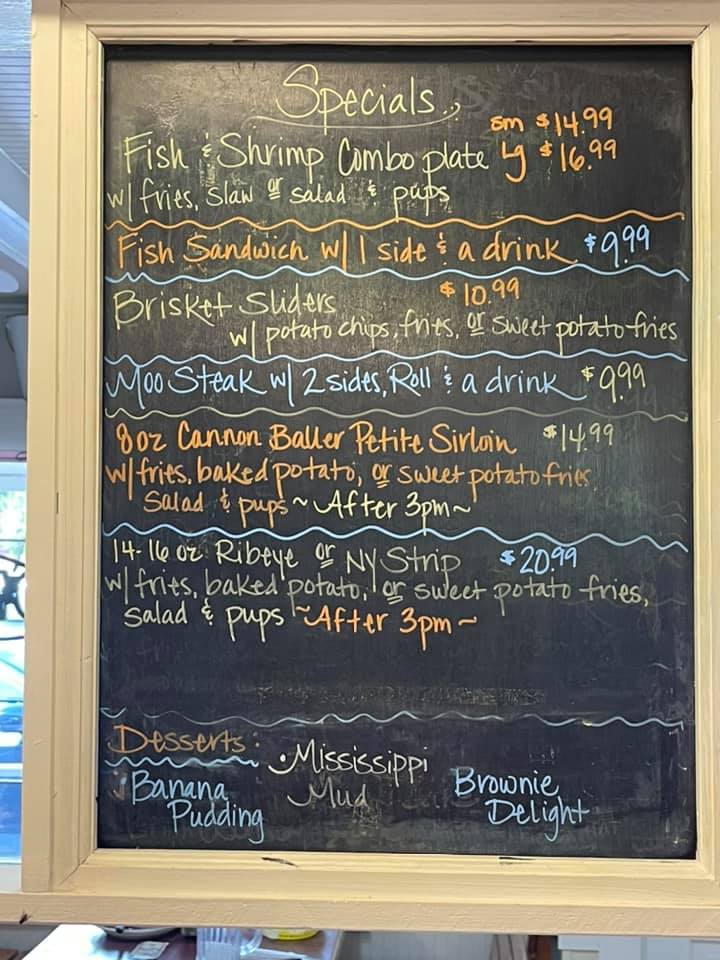 Specials
sm $14.99
Fish & Shrimp Combo plate lg $16.99
w/ fries, slaw or salad & pups
Fish Sandwich w/ 1 side & a drink $9.99
Brisket Sliders $10.99
w/ potato chips, fries, or sweet potato fries
Moo Steak w/ 2 sides, Roll & a drink $9.99
8oz Cannon Baller Petite Sirloin $14.99
w/ fries, baked potato, or sweet potato fries
Salad & pups ~After 3pm~
14-16 oz Ribeye or NY Strip $20.99
w/ fries, baked potato, or sweet potato fries,
salad & pups ~After 3pm~
Desserts:
• Banana
Pudding
• Mississippi
Mud
Brownie
Delight